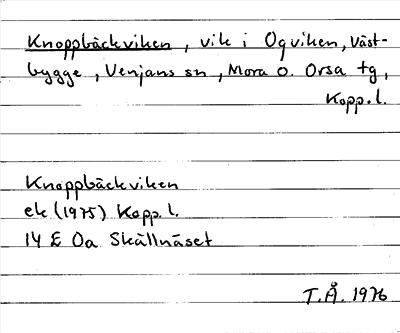 Knoppbäckviken, vik i Ogviken, Väst-
bygge, Venjans sn, Mora o. Orsa tg,
Kopp. l.
Knoppbäckviken
ek (1975) Kopp. l.
14 E 0a Skällnäset
T.Å. 1976